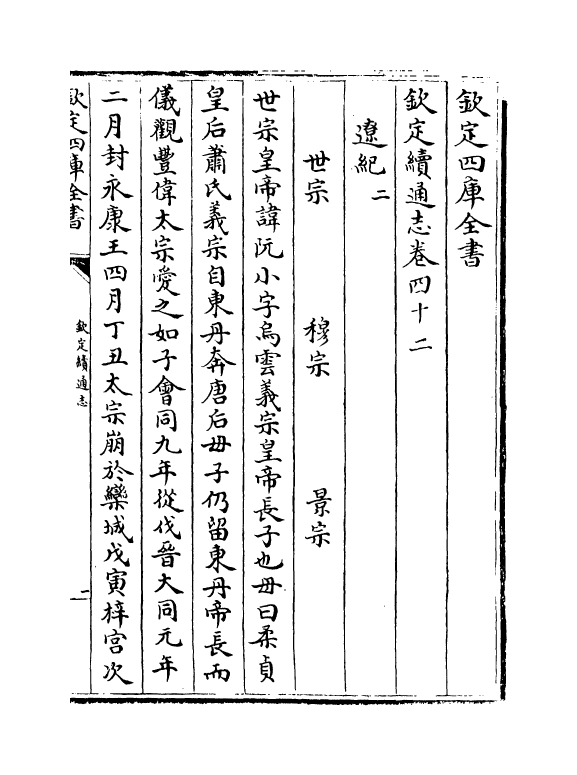 欽定四庫全書
欽定續通志卷四十二
遼紀二
世宗 穆宗 景宗
世宗皇帝諱阮小字烏雲義宗皇帝長子也母曰柔貞
皇后蕭氏義宗自東丹奔唐后毋子仍留東丹帝長而
儀觀豐偉太宗愛之如子會同九年從伐晉大同元年
二月封永康王四月丁丑太宗崩於欒城戊寅梓宫次
欽定四庫全書
欽定續通志